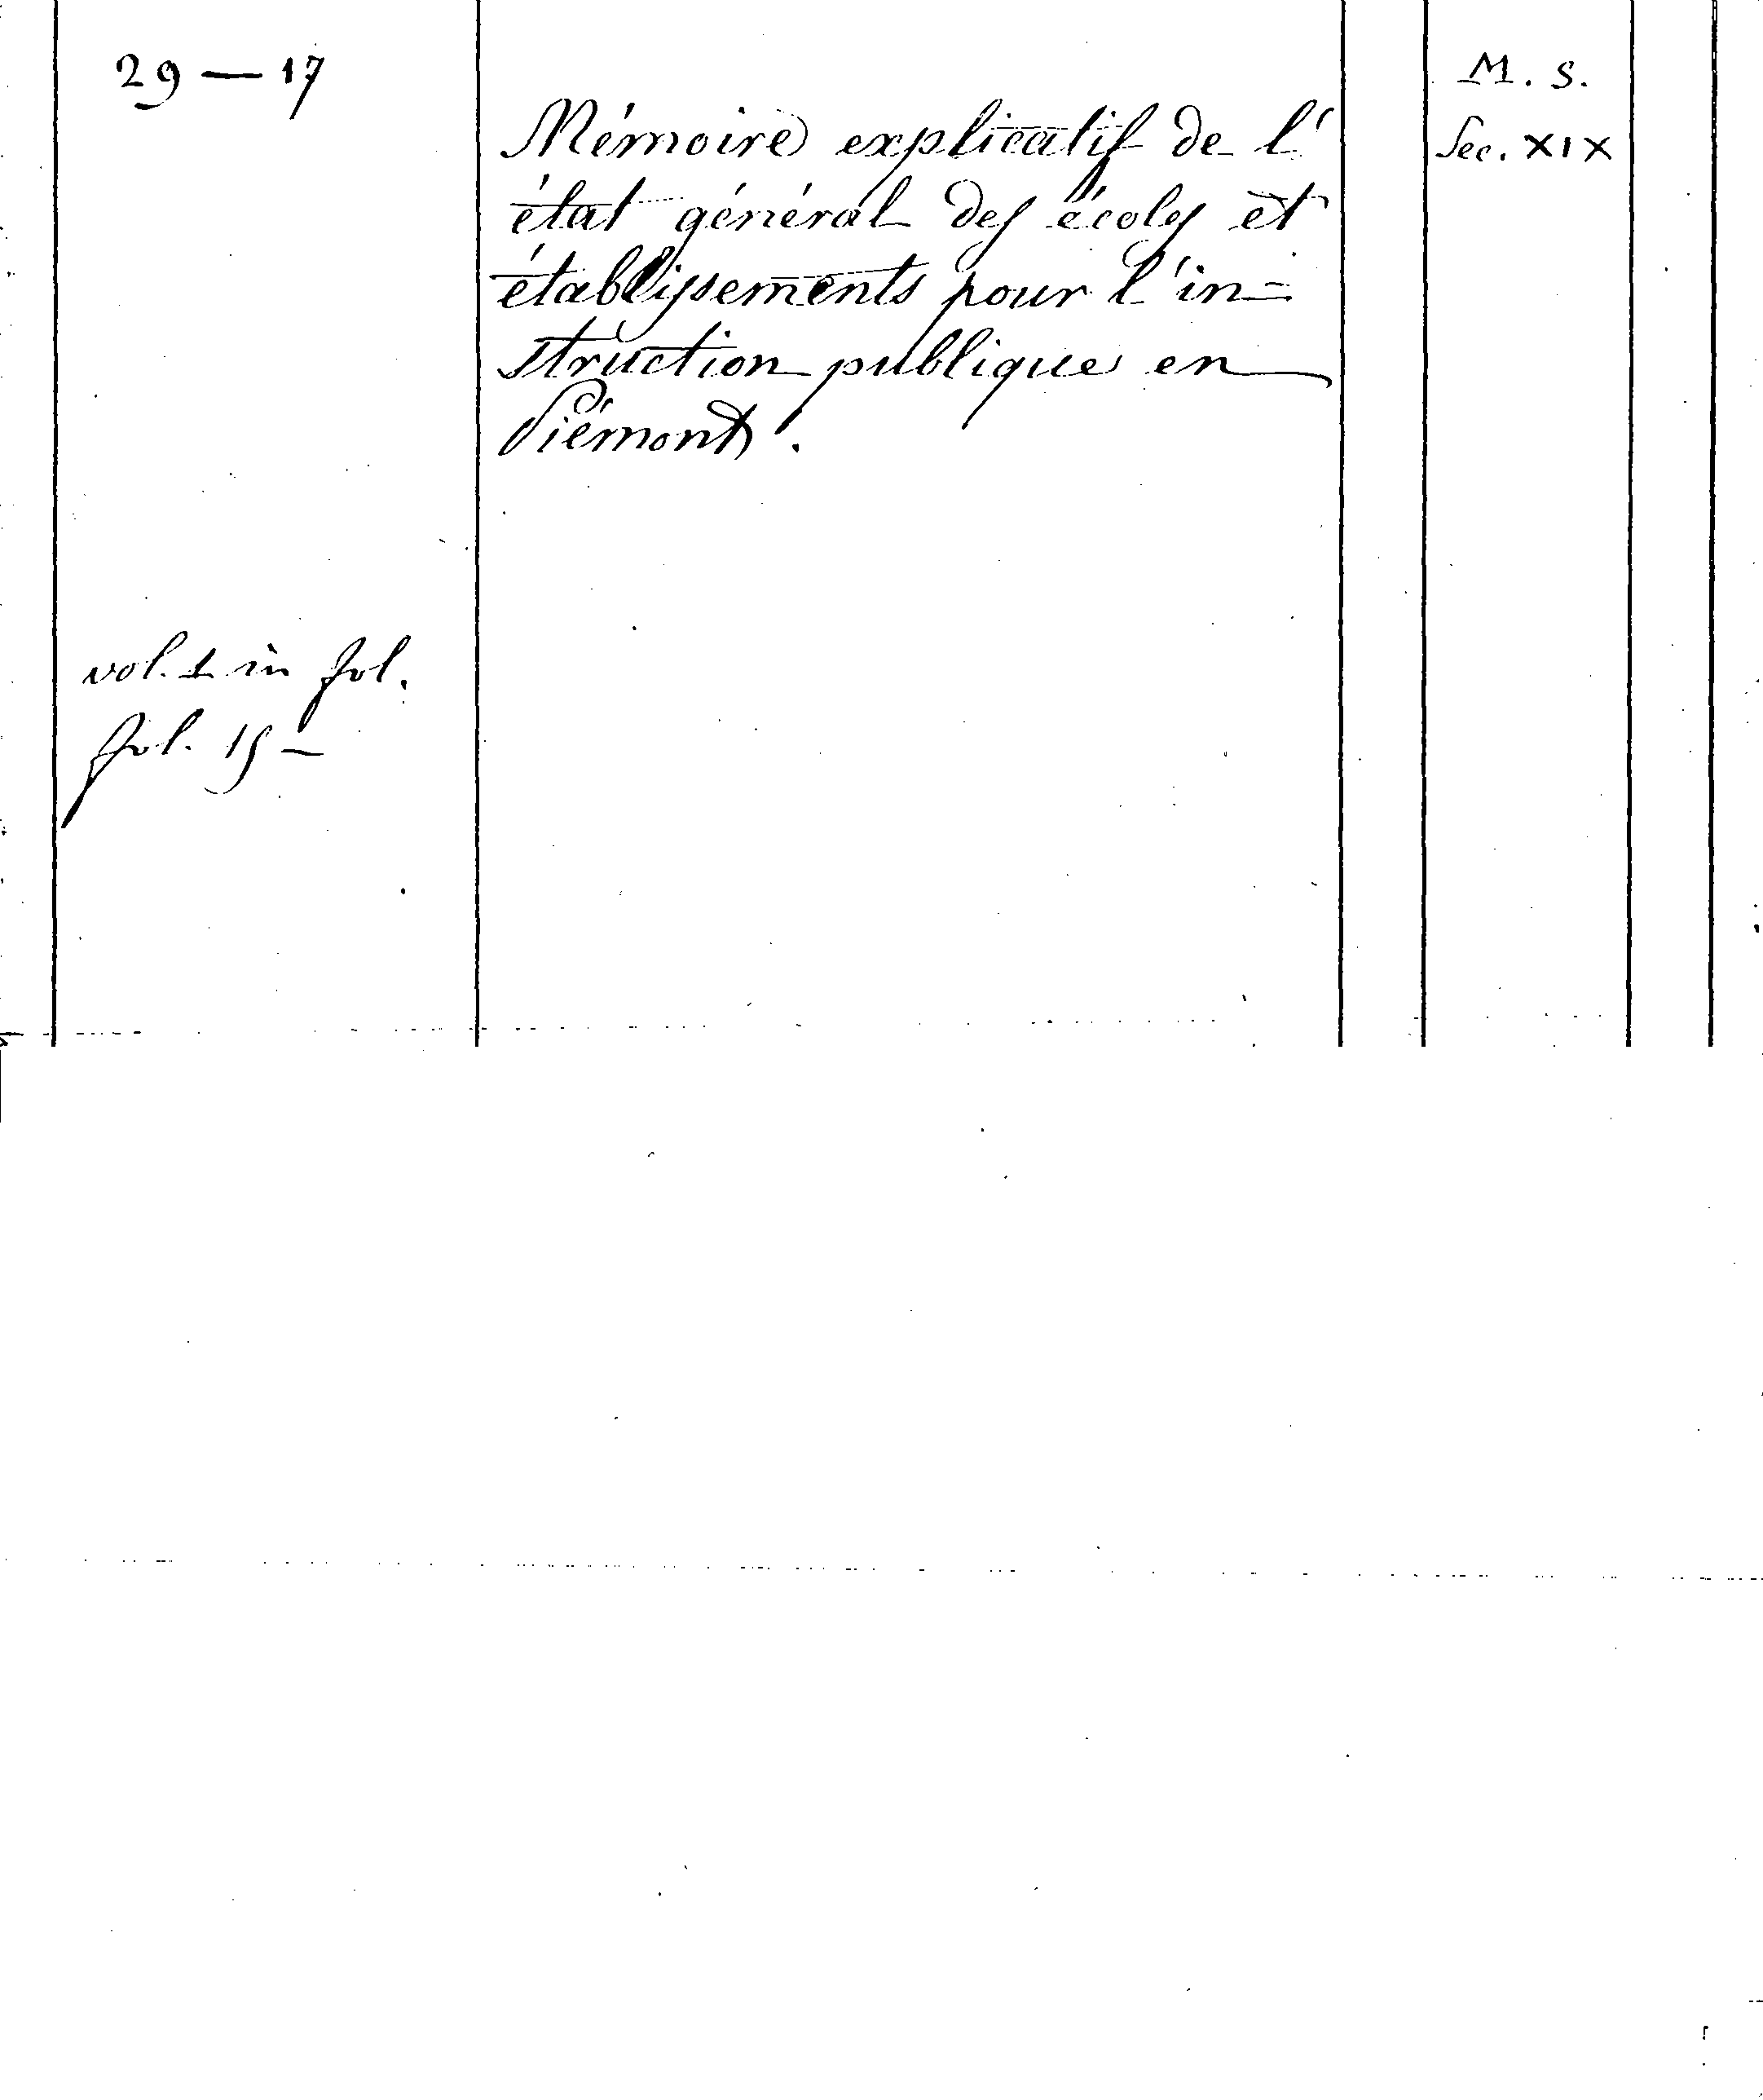 29 — 17
M. S.
Sec. XIX
Mémoire explicatif de l'
état général des écoles et
établissements pour l'in=
struction publique en
Piémont.
vol. 1 in fol.
fol. 15 —